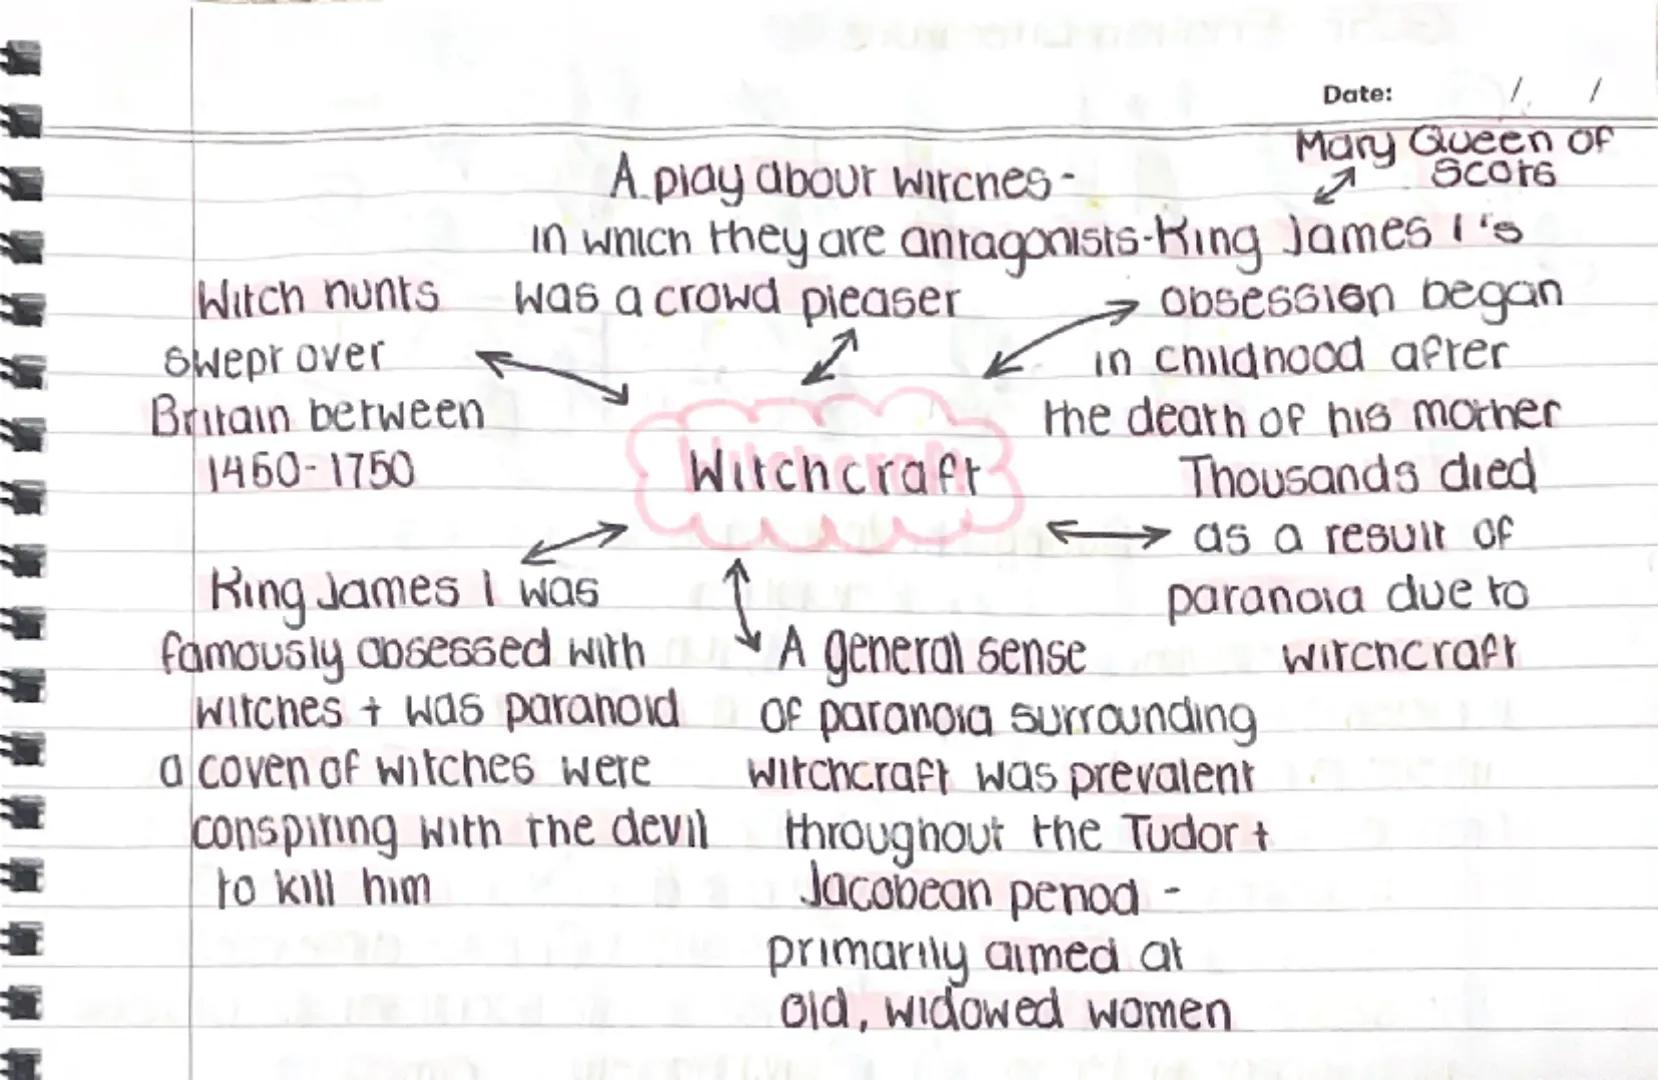 Date: / /
Mary Queen of
Scots
A play about witches -
in which they are antagonists -
was a crowd pleaser
King James I's
obsession began
in childhood after
the death of his mother
Witch hunts
swept over
Britain between
1450-1750
Witchcraft
Thousands died
as a result of
paranoia due to
witchcraft
King James I was
famously obsessed with
witches + was paranoid
a coven of witches were
conspiring with the devil
to kill him
A general sense
of paranoia surrounding
witchcraft was prevalent
throughout the Tudor +
Jacobean period -
primarily aimed at
old, widowed women